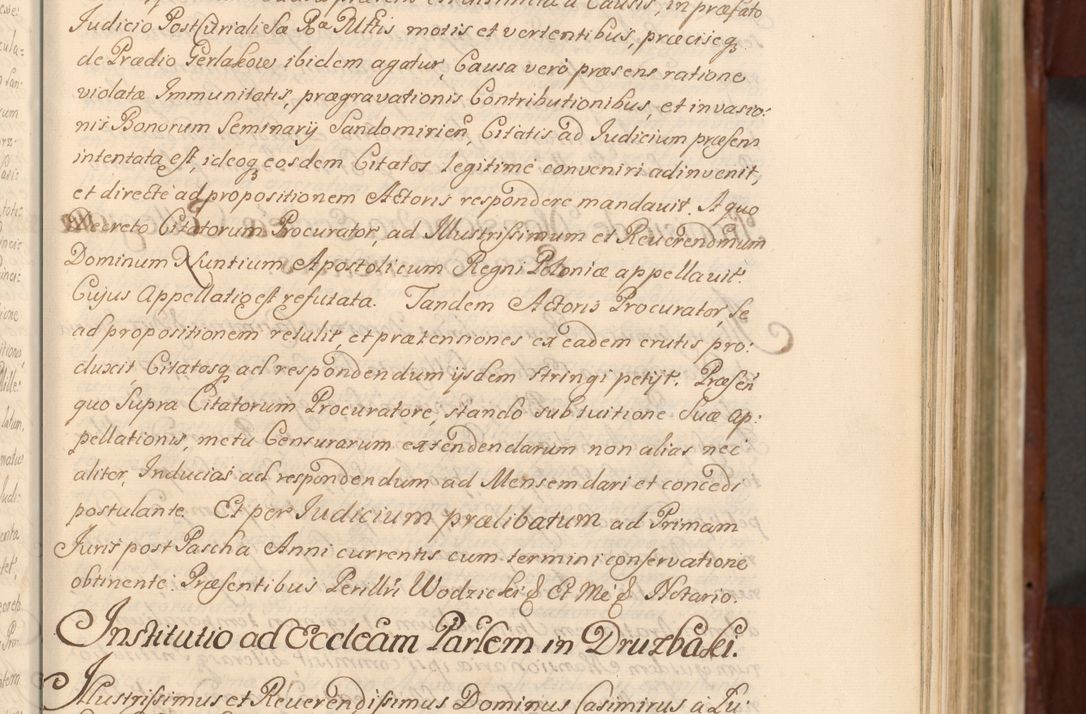 Judicio Postcuriali Sæ Ræ Mttis motis et vertentibus, præciseq3
de Prædio Gerlakow ibidem agatur, Causa verò præsens ratione
violatæ Immunitatis, prægravationis Contributionibus, et invasio:
nis Bonorum Seminarij Sandomirień, Citatis ad Judicium præsens
intentata est, ideoq3 eosdem Citatos legitimè conveniri adinvenit,
et directè ad propositionem Actoris respondere mandavit. A quo
Decreto Citatorum Procurator, ad Illustrissimum et Reverendmum
Dominum Nuntium Apostolicum Regni Poloniæ appellavit.
Cujus Appellatio est refutata. Tandem Actoris Procurator, se
ad propositionem retulit, et prætensiones ex eadem erutis pro:
duxit, Citatosq3 ad respondendum ijsdem stringi petijt. Præseń
quo supra Citatorum Procuratore, stando sub tuitione suæ ap:
pellationis, metu Censurarum extendendarum non alias nec
aliter, Inducias ad respondendum ad Mensem dari et concedi
postulante. Et per Judicium prælibatum ad Primam
Juris post Pascha Anni currentis cum termini conservatione
obtinente. Præsentibus Perillri Wodzicki & Et Me & Notario.
Institutio ad Eccleam Parlem in Druzbaki.
Illustrissimus et Reverendissimus Dominus Casimirus a Lu: